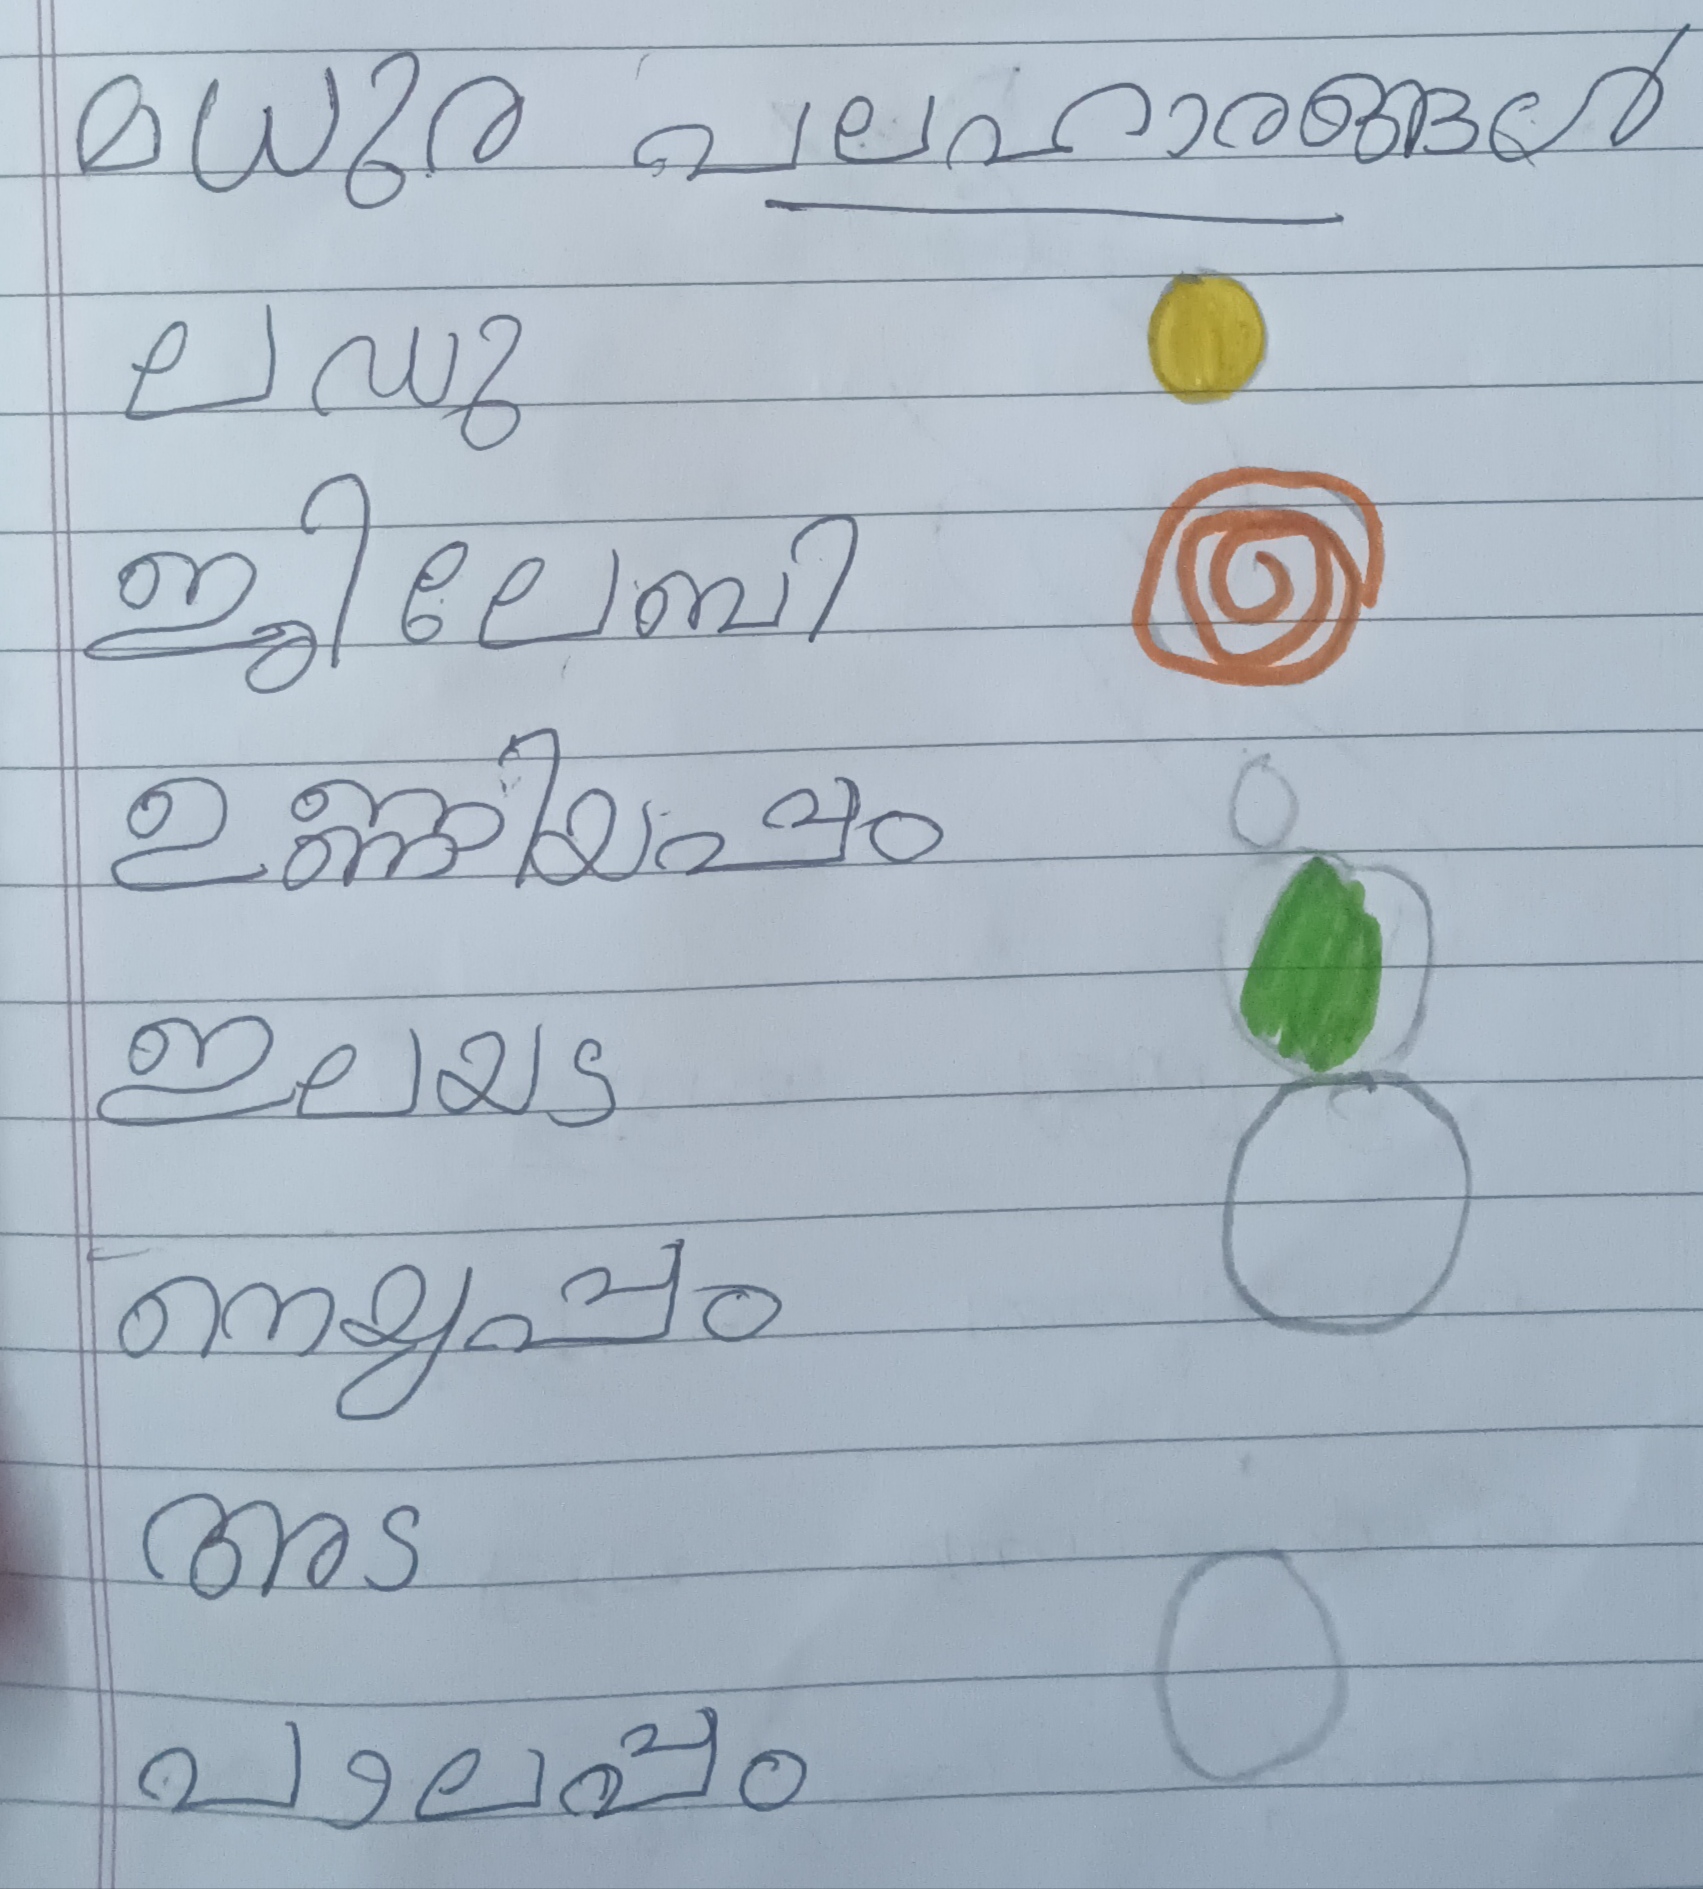 മധുര പലഹാരങ്ങൾ
ലഡു
ജിലേബി
ഉണ്ണിയപ്പം
ഇലയട
നെയ്യപ്പം
അട
പാലപ്പം